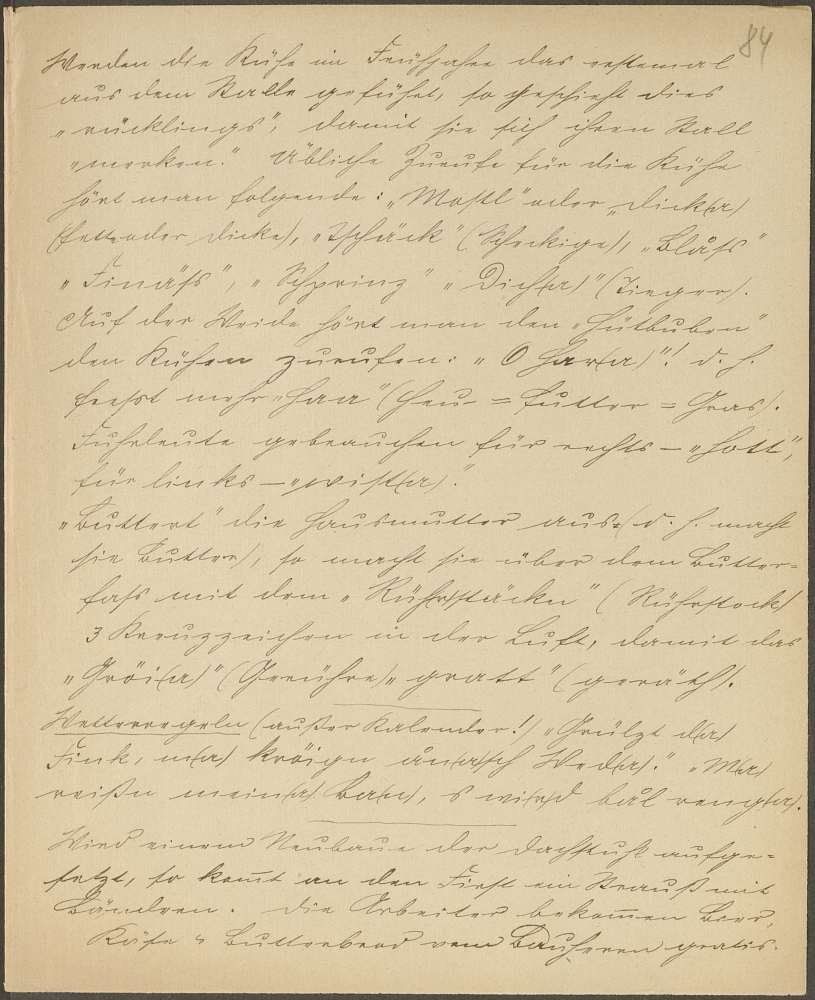 84
Werden die Kühe im Frühjahre das erstemal
aus dem Stalle geführt, so geschieht dies
„rücklings“, damit sie sich ihren Stall
„merken.“ Übliche Zurufe für die Kühe
hört man folgende: „Mostl“ oder „Dick(a)
(fette oder dicke), „Tschäck“ (Scheckige), „Blåss“
„Finäss“, „Schprinz“ „Dich(a)“ (Tieger).
Auf der Weide hört man den „Hütbuben“
den Kühen zurufen: „O Har(a)“! d. h.
freßt mehr „Haa“ (Heu- = Futter = Gras).
Fuhrleute gebrauchen für rechts – „hott“,
für links – „wist(a).“
„Buttert“ die Hausmutter aus (d. h. macht
sie Butter), so macht sie über dem Butter-
fass mit dem „Rüh(r)stäckn“ (Rührstock)
3 Kreuzzeichen in der Luft, damit das
„Gröi(a)“ (Gerühre) „gratt“ (geräth).
Wetterregeln (außer Kalender!) „Grülzt d(a)
Fink, m(a) kröign ån(a)sch Wed(a).“ „M(a)
reißn mein(a) Ba(n), s wi(r)d bål reng(a).
Wird einem Neubaue der Dachstuhl aufge-
setzt, so kom̄t an den First ein Strauß mit
Bändern. Die Arbeiter bekom̄en Bier,
Käse u Butterbrod vom Bauherren gratis.